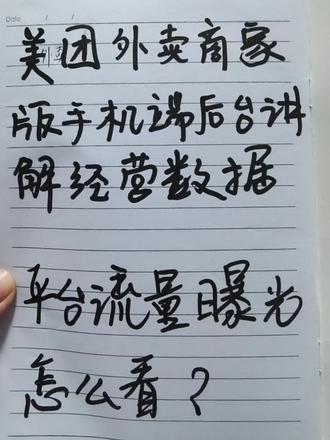 Date / /
美团外卖商家
版手机端后台讲
解经营数据
平台流量曝光
怎么看？